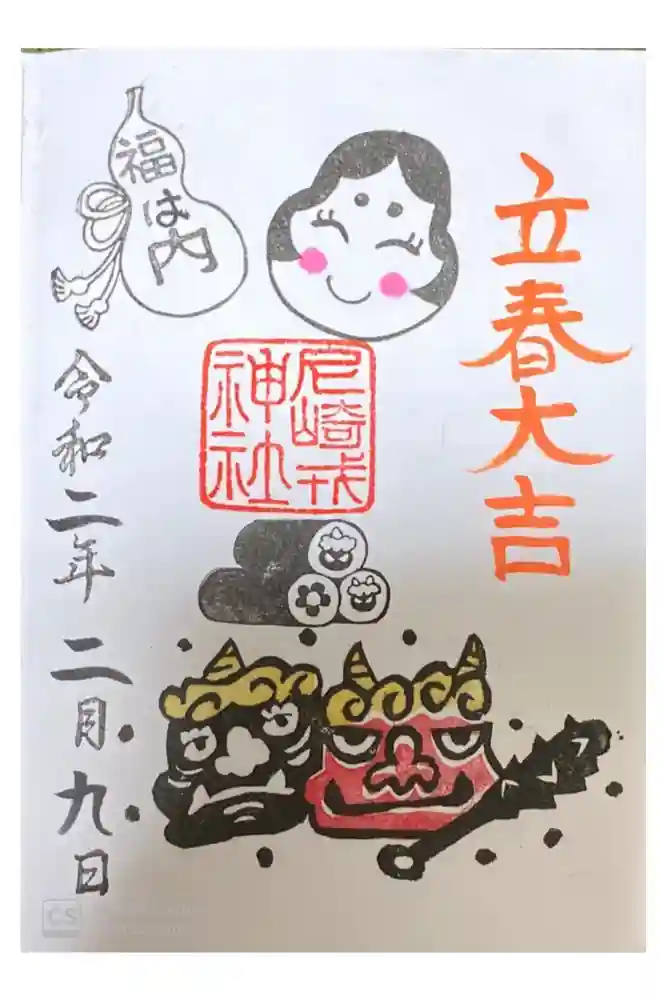 立春大吉
福は内
尼崎戎
神社
令和二年二月九日
CS